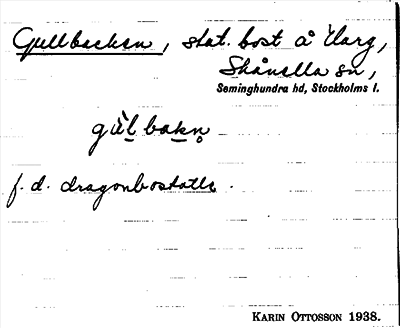 Gullbacken, stat. bost å Harg,
Skånella sn,
Seminghundra hd, Stockholms l.
gὺl bakn̥
f. d. dragonboställe.
KARIN OTTOSSON 1938.